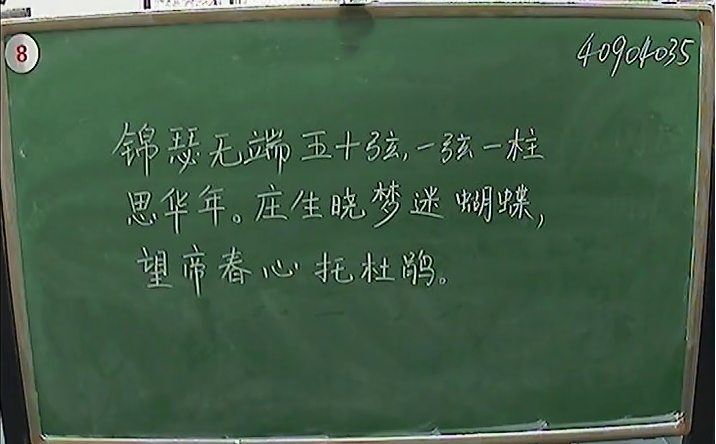 8
40904035
锦瑟无端五十弦,一弦一柱
思华年。庄生晓梦迷蝴蝶,
望帝春心托杜鹃。